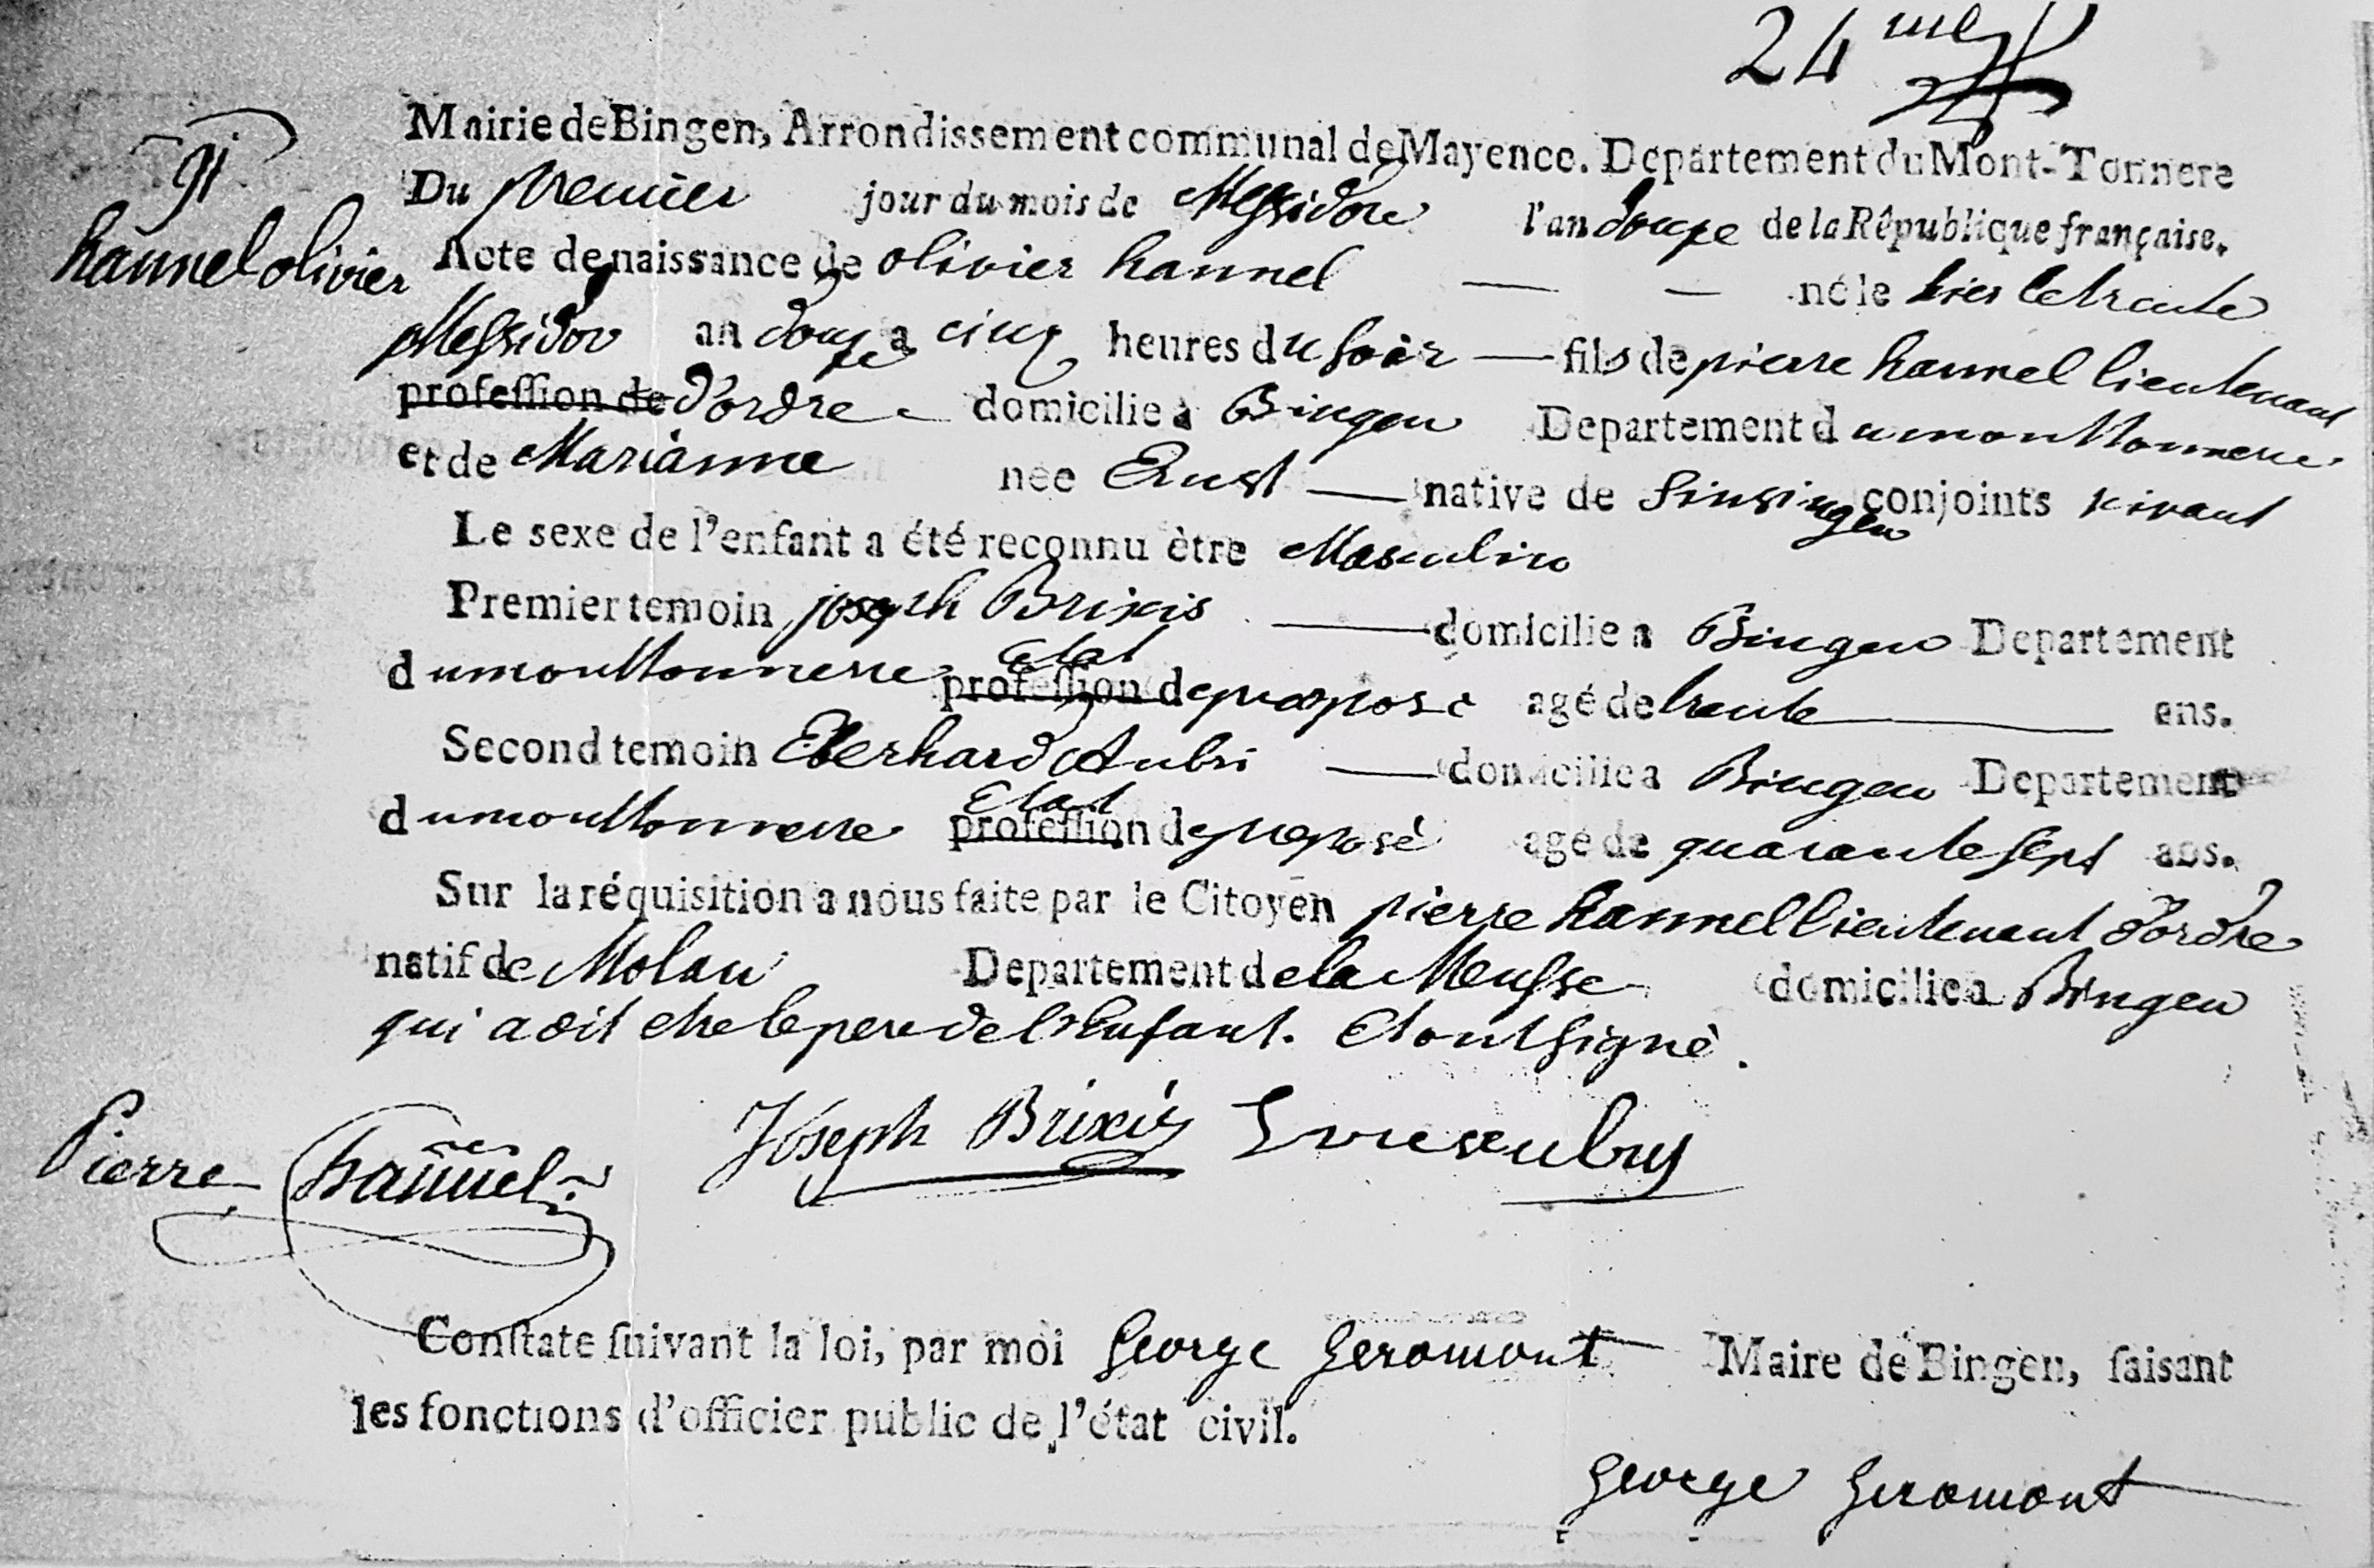 24 me
91
hannel olivier
Mairie de Bingen, Arrondissement communal de Mayence. Departement du Mont-Tonnere
Du premier jour du mois de Messidor l'an douze de la République française.
Acte de naissance de olivier hannel né le hier le trente
Messidor an douze a cinq heures du soir fils de pierre hannel lieutenant
profession de d'ordre domicilie à Bingen Departement du monttonnerre
et de Marianne née Ernst native de Sinsingen conjoints vivant
Le sexe de l'enfant a été reconnu ètre Masculin
Premier temoin joseph Brixis domicilie a Bingen Departement
du monttonnerre Etat profession de preposé agé de trente ans.
Second temoin Eberhard Aubri domicilie a Bingen Departement
du monttonnerre Etat profession de preposé agé de quarante sept ans.
Sur la réquisition a nous faite par le Citoyen pierre hannel lieutenant d'ordre
natif de Molau Departement de la Meusse domicilie a Bingen
qui a dit etre le pere de l'Enfant. Et ont signé.
Pierre hannel Joseph Brixis
Constate suivant la loi, par moi George Geromont Maire de Bingen, faisant
les fonctions d'officier public de l'état civil.
George Geromont